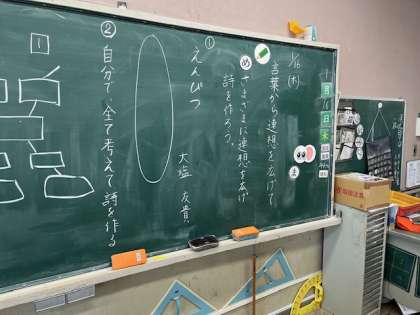 1/16(木)
言葉から連想を広げて
めさまざまに連想を広げ
詩を作ろう。
①
えんぴつ
大塩 友貴
②自分で全て考えて詩を作る
1
1月16日木
ま